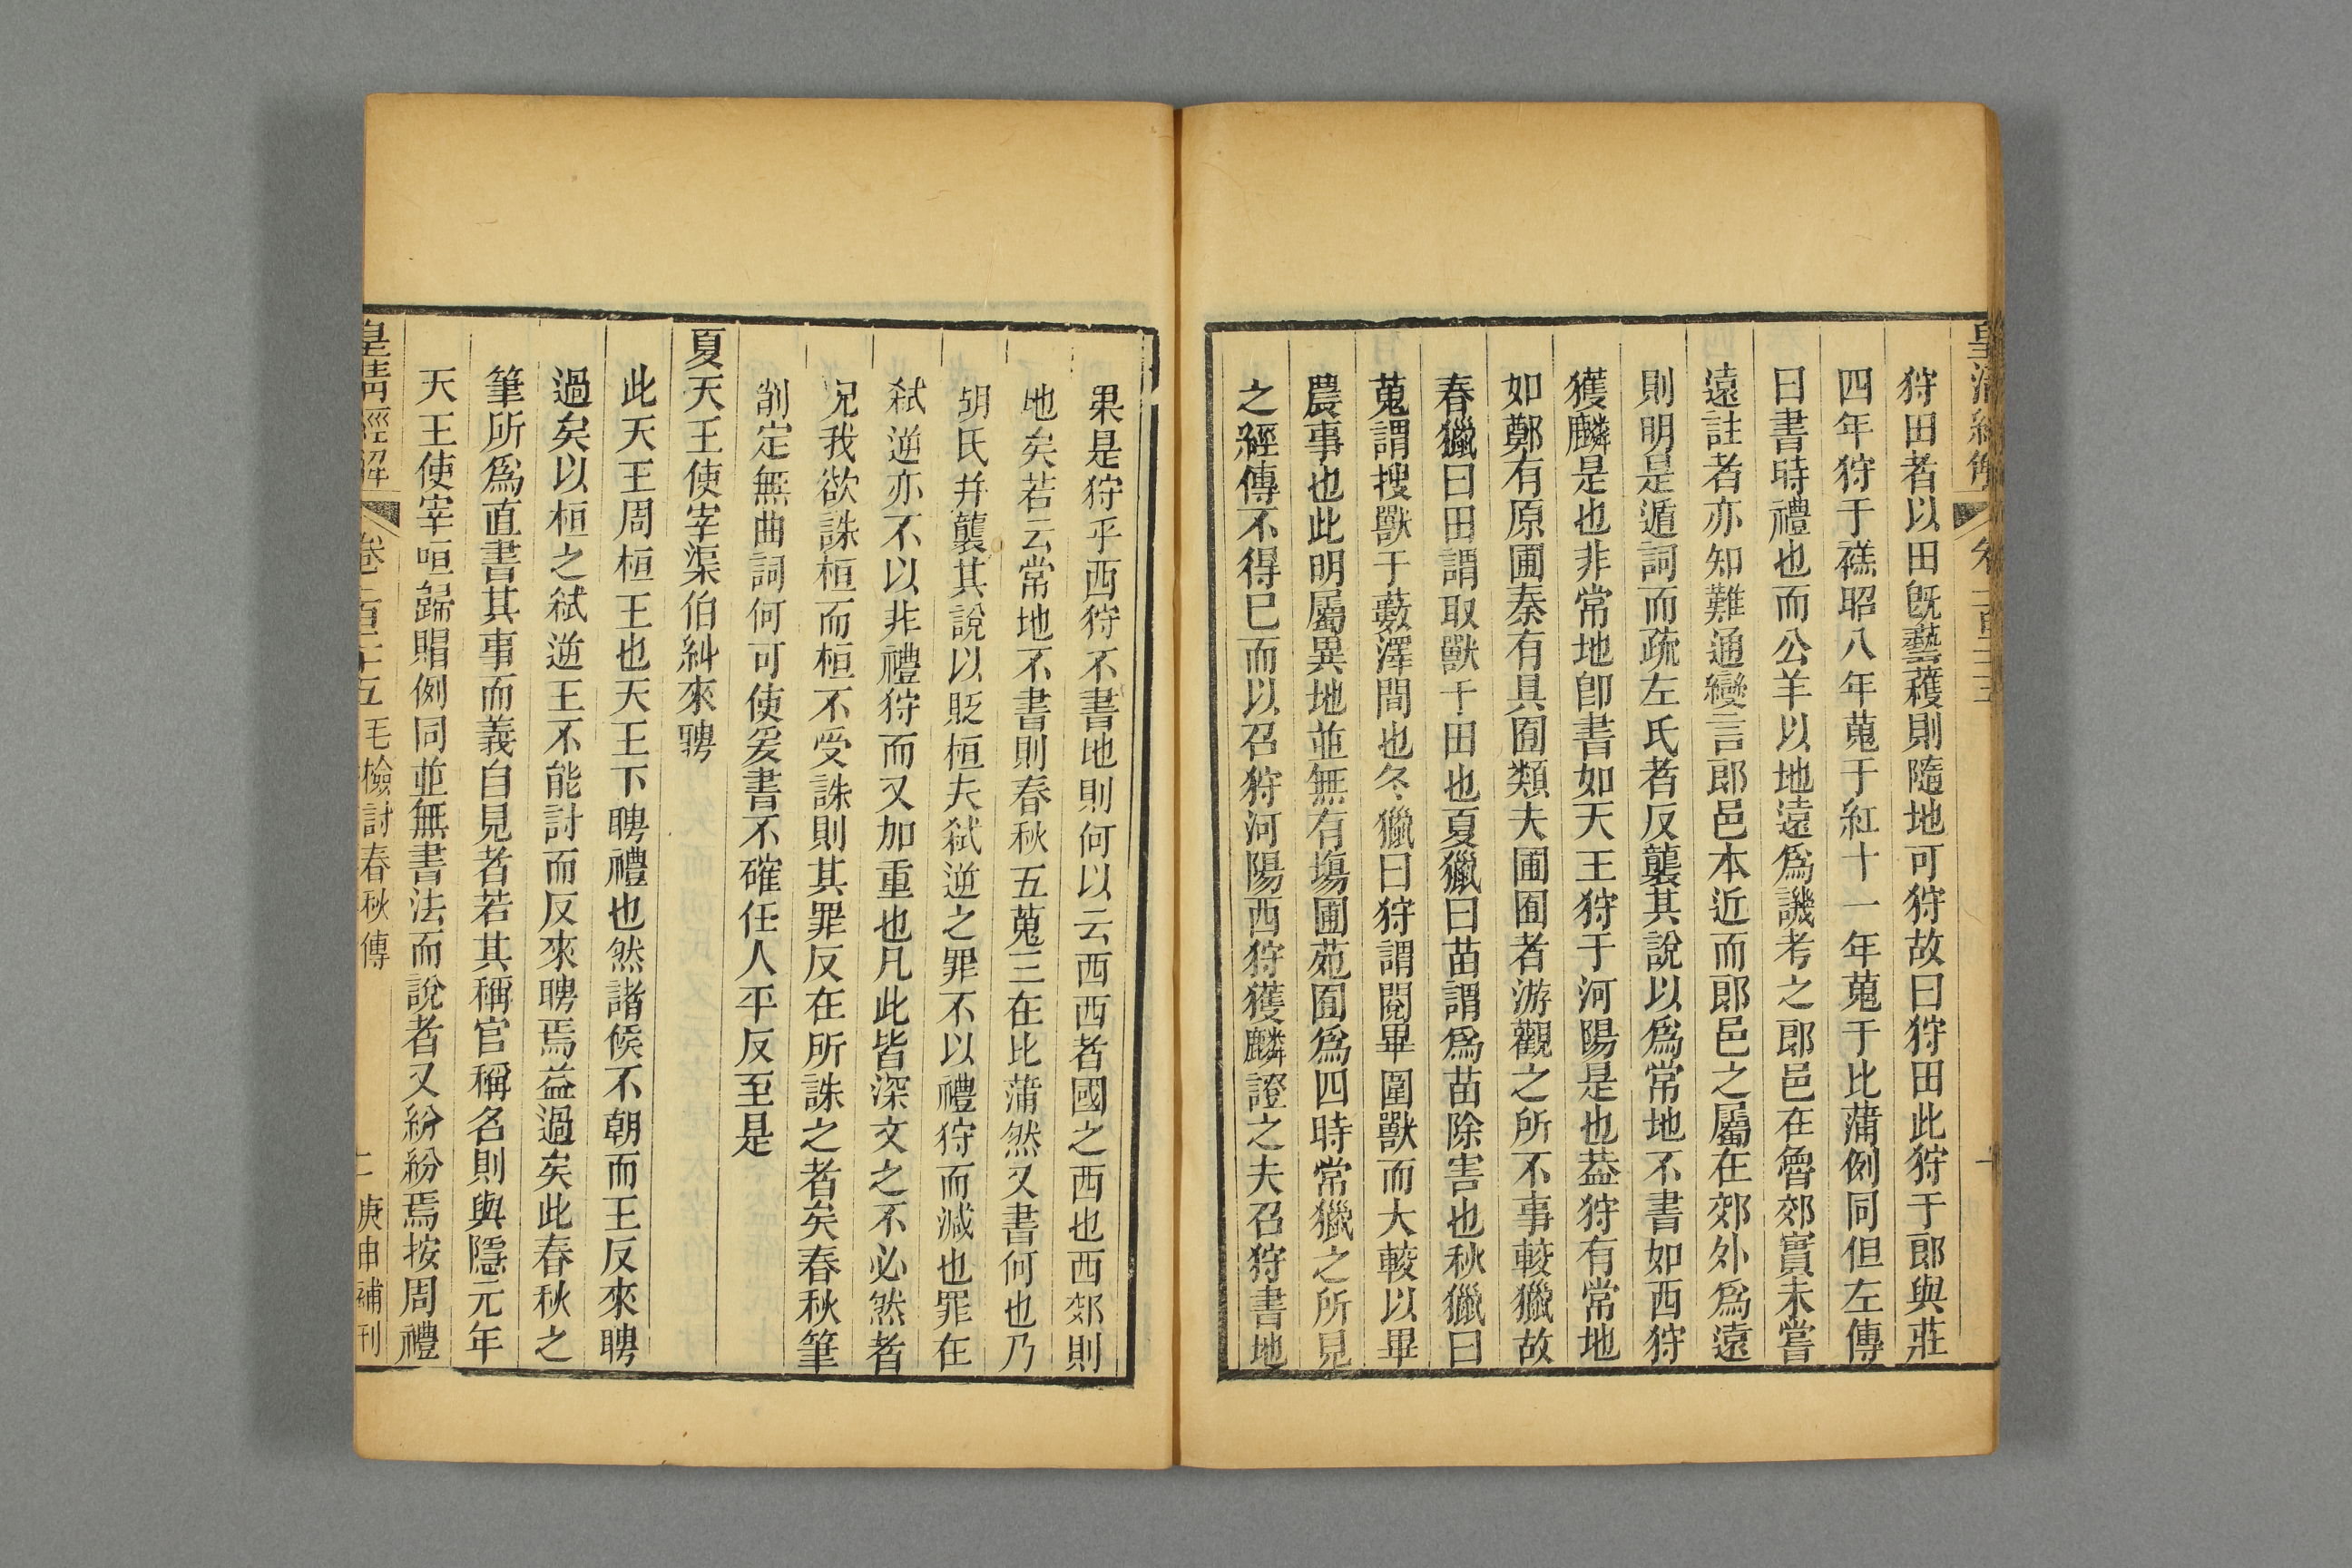 狩田者以田旣藝穫則隨地可狩故曰狩田此狩于郎與莊
四年狩于禚昭八年蒐于紅十一年蒐于比蒲例同但左傳
曰書時禮也而公羊以地遠爲譏考之郎邑在魯郊實未嘗
遠註者亦知難通變言郎邑本近而郎邑之屬在郊外爲遠
則明是遁詞而疏左氏者反襲其說以爲常地不書如西狩
獲麟是也非常地卽書如天王狩于河陽是也葢狩有常地
如鄭有原圃秦有具囿類夫圃囿者游觀之所不事較獵故
春獵曰田謂取獸于田也夏獵曰苗謂爲苗除害也秋獵曰
蒐謂搜獸于藪澤間也冬獵曰狩謂閱畢圍獸而大較以畢
農事也此明屬異地並無有塲圃苑囿爲四時常獵之所見
之經傳不得已而以召狩河陽西狩獲麟證之夫召狩書地
果是狩乎西狩不書地則何以云西西者國之西也西郊則
地矣若云常地不書則春秋五蒐三在比蒲然又書何也乃
胡氏幷襲其說以貶桓夫弑逆之罪不以禮狩而減也罪在
弑逆亦不以非禮狩而又加重也凡此皆深文之不必然者
况我欲誅桓而桓不受誅則其罪反在所誅之者矣春秋筆
削定無曲詞何可使爰書不確任人平反至是
夏天王使宰渠伯糾來聘
此天王周桓王也天王下聘禮也然諸侯不朝而王反來聘
過矣以桓之弑逆王不能討而反來聘焉益過矣此春秋之
筆所爲直書其事而義自見者若其稱官稱名則與隱元年
天王使宰咺歸賵例同並無書法而說者又紛紛焉按周禮
皇淸經解 卷一百二十五 毛檢討春秋傳 二 庚申補刊